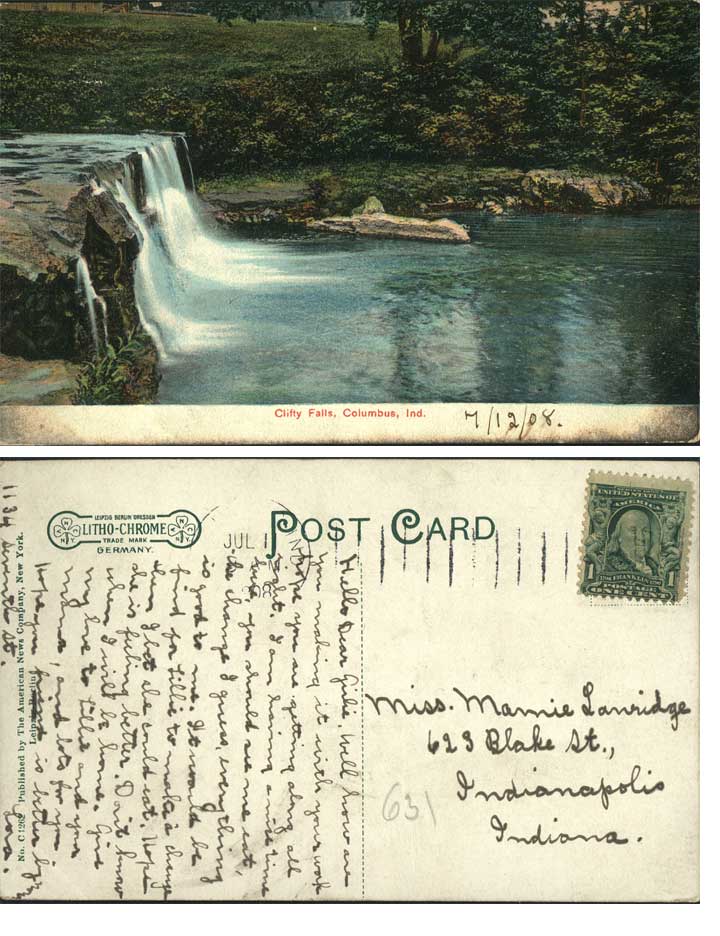 Clifty Falls, Columbus, Ind.
7/12/08.
LEIPZIG BERLIN DRESDEN
LITHO-CHROME
TRADE MARK
GERMANY.
JUL
POST CARD
UNITED STATES OF
AMERICA
FRANKLIN
1
Miss. Mamie Lanridge
623 Blake St.,
Indianapolis
Indiana.
631
No. C 1262 Published by The American News Company, New York.
Leipzig, Berlin
Hello Dear Girlie. Well how are
you making it with your work
hope you are getting along all
right. I am having a time
but, you should see me eat,
the change I guess, everything
is good to me. It would be
good for Lillie to make a change
then I bet she could eat. Hope
she is feeling better. Don't know
when I will be home. Give
my love to Lillie and your
mama, and lots for you
Hope your is better by
1134 seventh st.